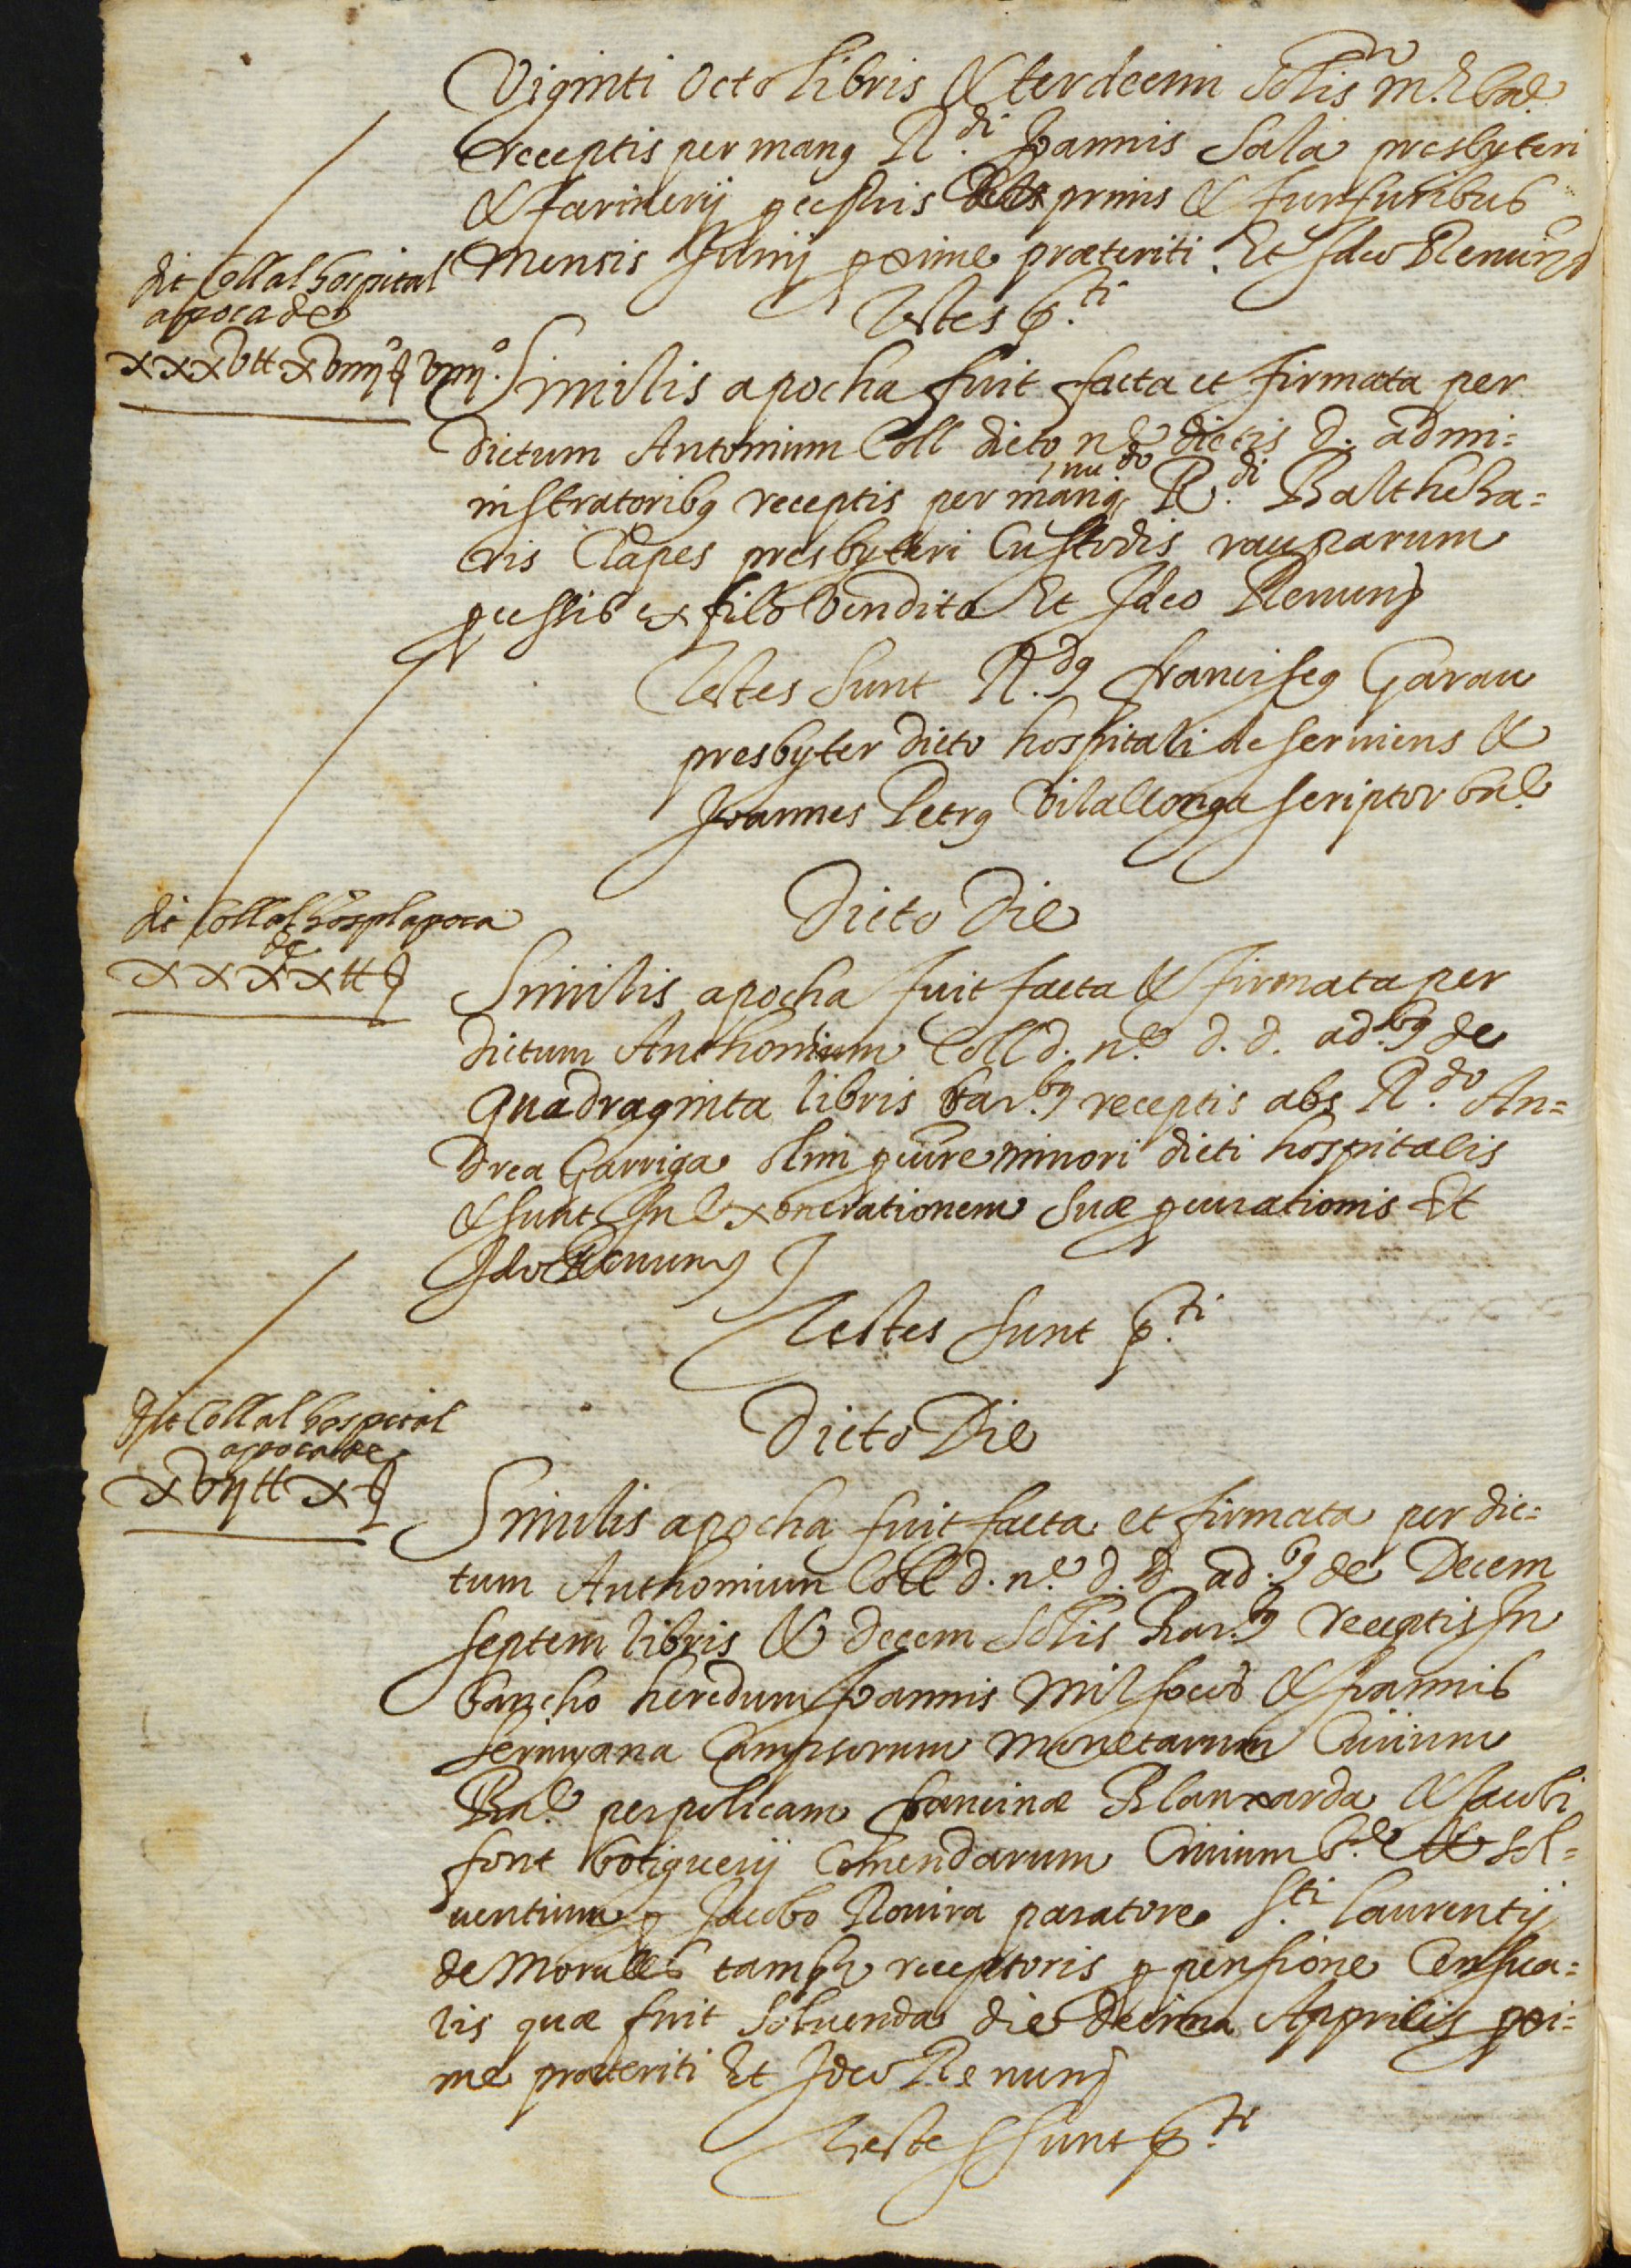 Viginti Octo libris & terdecim Solis m.e bar.e
receptis per manq R.di Joannis Sala presbyteri
& farinerij p cessris primis & furfuribus
Mensis Junij pxime præteriti. Et Ideo Renun
testes p.ti
dit Coll al hospital
apoca de
xxxvtt xviiijß viiij.
Similis apocha fuit facta et firmata per
dictum Antonium Coll dicto n.e dictis d. admi=
nistratoribq receptis per manq R.di Balthesa=
ris Clapes presbyteri Custodis raupparum
p cessis ex filo vendito Et Ideo Renun
Testes sunt R.dq franciscq Garau
presbyter dicto hospitali deserviens &
Joannes Petrq Vilallonga scriptor bn.e
dit Coll al hospl apoca
de
xxxxttß
Dicto Die
Similis apocha fuit facta & firmata per
dictum Anthonium Coll d. n.e d. d. ad.bq de
Quadraginta libris bar.bq receptis abs R.do An=
drea Garriga olim p cure minori dicti hospitalis
& sunt In exonerationem suæ p curationis Et
Ideo Renun
Testes sunt p.ti
dit Coll al hospital
apoca de
xvijtt xß
Dicto Die
Similis apocha fuit facta et firmata per dic=
tum Anthonium Coll d. n.e d. d. ad.bq de Decem
septem libris & decem Solis Bar.bq receptis In
bancho heredum Joannis Milsocos & Joannis
Servyana Campsorum Monetarum Civium
Ba.e per policam francinæ Blanxarda & Jacobi
font botiguerij Comendarum Civium b.e & sol=
ventium p Jacobo Rovira paratore S.ti Laurentij
de Morulls tamqz receptoris p pensione Censua=
lis quæ fuit solvenda die decima Apprilis pxi=
me præteriti Et Ideo Renun
Testes sunt p.ti